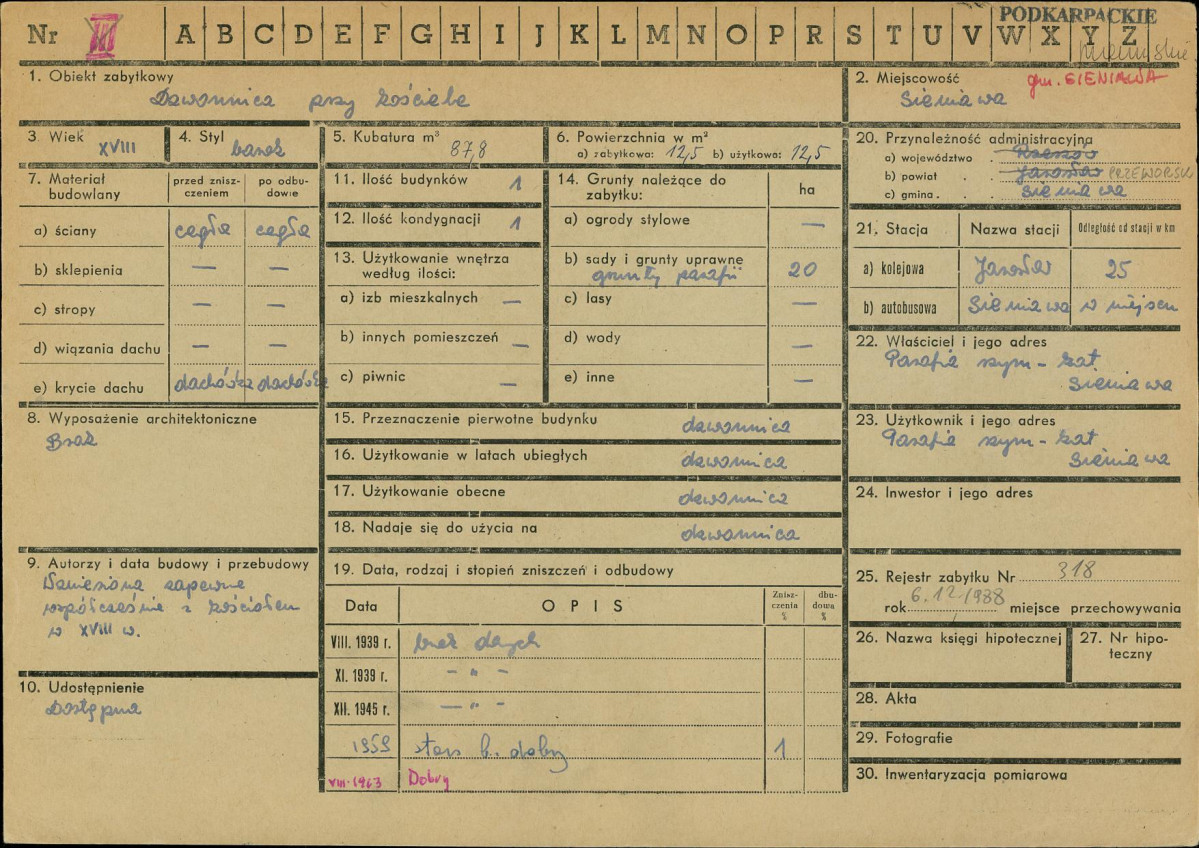 Nr XIII A B C D E F G H I J K L M N O P R S T U V W X Y Z
PODKARPACKIE
1. Obiekt zabytkowy
Dzwonnica przy kościele
2. Miejscowość gm. SIENIAWA
Sieniawa
3. Wiek XVIII
4. Styl barok
5. Kubatura m³ 87,8
6. Powierzchnia w m²
a) zabytkowa: 12,5 b) użytkowa: 12,5
7. Materiał budowlany
przed zniszczeniem
po odbudowie
a) ściany cegła cegła
b) sklepienia — —
c) stropy — —
d) wiązania dachu — —
e) krycie dachu dachówka dachówka
8. Wyposażenie architektoniczne
Brak
9. Autorzy i data budowy i przebudowy
Wzniesiona zapewne
współcześnie z kościołem
w XVIII w.
10. Udostępnienie
Dostępna
11. Ilość budynków 1
12. Ilość kondygnacji 1
13. Użytkowanie wnętrza
według ilości:
a) izb mieszkalnych —
b) innych pomieszczeń —
c) piwnic —
14. Grunty należące do
zabytku:
ha
a) ogrody stylowe —
b) sady i grunty uprawne
grunty parafii 20
c) lasy —
d) wody —
e) inne —
15. Przeznaczenie pierwotne budynku dzwonnica
16. Użytkowanie w latach ubiegłych dzwonnica
17. Użytkowanie obecne dzwonnica
18. Nadaje się do użycia na dzwonnica
19. Data, rodzaj i stopień zniszczeń i odbudowy
Data
OPIS
Zniszczenia %
dbudowa %
VIII. 1939 r. brak danych
XI. 1939 r. - " -
XII. 1945 r. - " -
1959 stan b. dobry 1
VIII-1963 Dobry
20. Przynależność administracyjna
a) województwo . Rzeszów
b) powiat . . Jarosław PRZEWORSK
c) gmina . . Sieniawa
21. Stacja
Nazwa stacji
Odległość od stacji w km
a) kolejowa Jarosław 25
b) autobusowa Sieniawa w miejscu
22. Właściciel i jego adres
Parafia rzym-kat
Sieniawa
23. Użytkownik i jego adres
Parafia rzym-kat
Sieniawa
24. Inwestor i jego adres
25. Rejestr zabytku Nr 318
rok 6.12.1988 miejsce przechowywania
26. Nazwa księgi hipotecznej
27. Nr hipoteczny
28. Akta
29. Fotografie
30. Inwentaryzacja pomiarowa